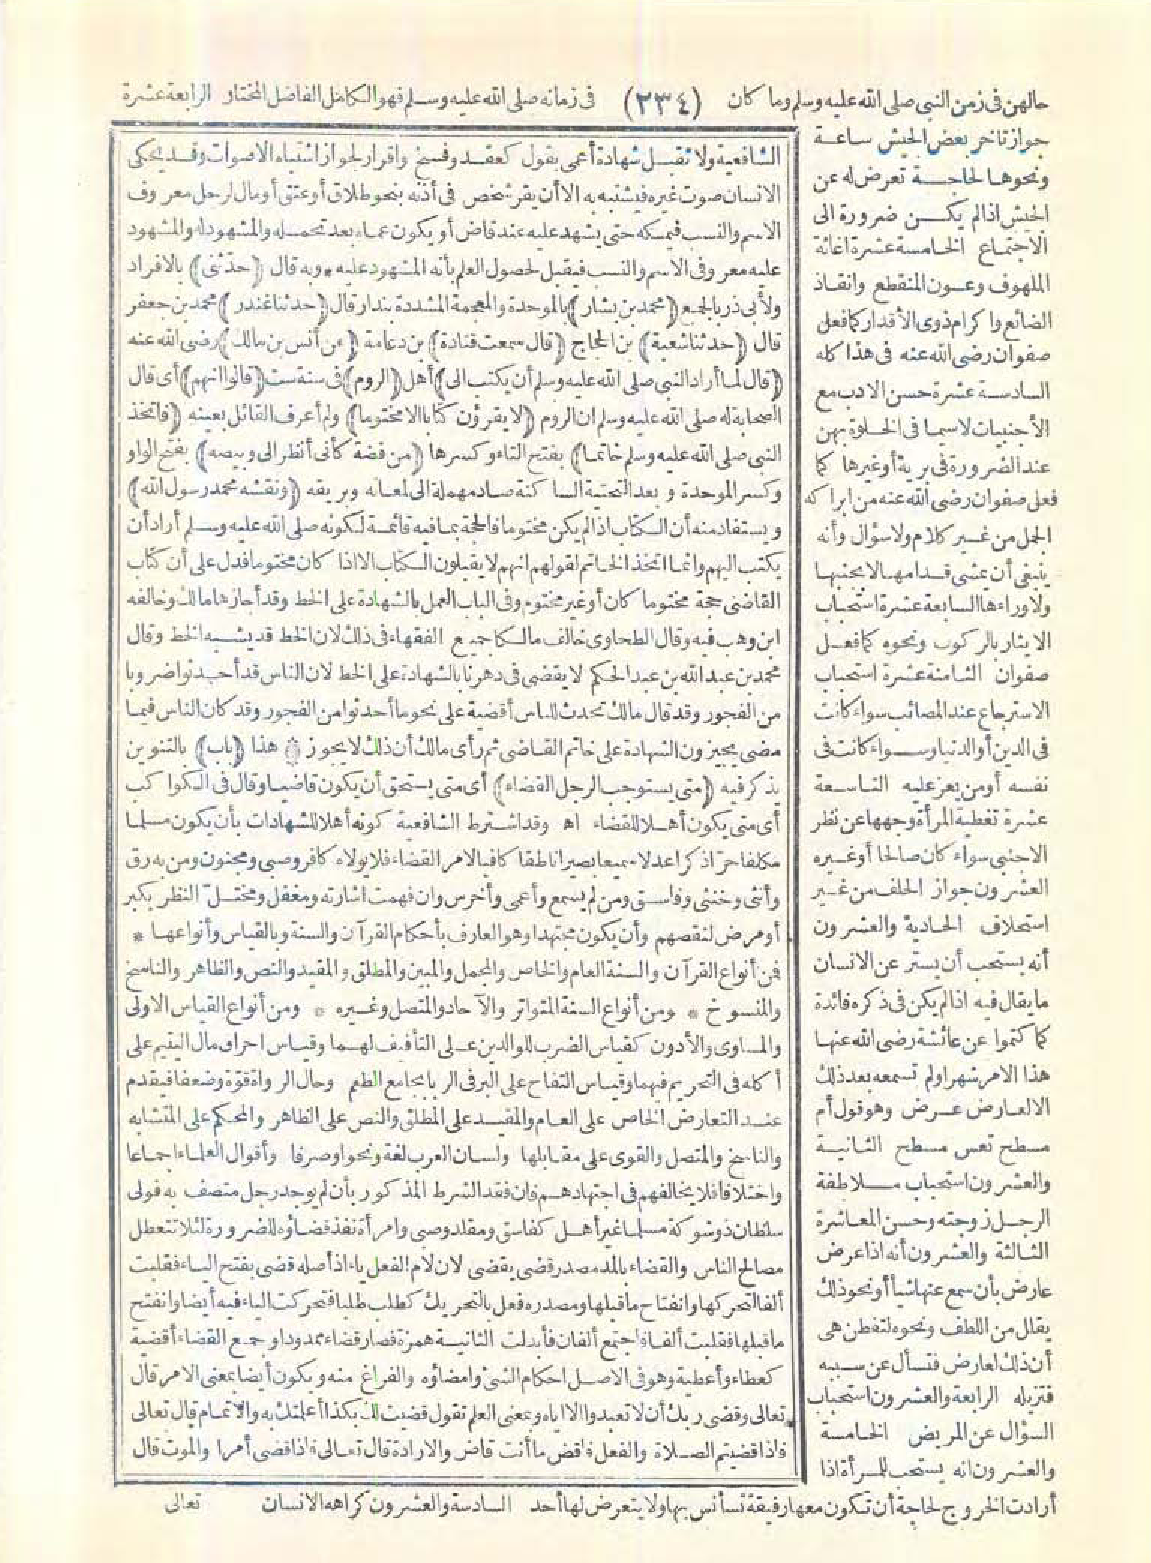 حالهن فى زمن النبى صلى الله عليه وسلم وما كان (٢٣٤) فى زمانه صلى الله عليه وسلم فهو الكامل الفاضل المختار الرابعة عشرة
جواز تأخر بعض الجيش ساعة
ونحوها لحاجة تعرض له عن
الجيش اذا لم يكن ضرورة الى
الاجتماع الخامسة عشرة اغاثة
الملهوف وعون المنقطع وانقاذ
الضائع واكرام ذوى الأقدار كما فعل
صفوان رضى الله عنه فى هذا كله
السادسة عشرة حسن الادب مع
الأجنبيات لاسيما فى الخلوة بهن
عند الضرورة فى برية أو غيرها كما
فعل صفوان رضى الله عنه من ابراكه
الجمل من غير كلام ولا سؤال وأنه
ينبغى أن يمشى قدامها لا بجنبها
ولا وراءها السابعة عشرة استحباب
الايثار بالركوب ونحوه كما فعل
صفوان الثامنة عشرة استحباب
الاسترجاع عند المصائب سواء كانت
فى الدين أو الدنيا وسواء كانت فى
نفسه أو من يعز عليه التاسعة
عشرة تغطية المرأة وجهها عن نظر
الاجنبى سواء كان صالحا أو غيره
العشرون جواز الحلف من غير
استحلاف الحادية والعشرون
أنه يستحب أن يستر عن الانسان
ما يقال فيه اذا لم يكن فى ذكره فائدة
كما كتموا عن عائشة رضى الله عنها
هذا الامر شهرا ولم تسمعه بعد ذلك
الا لعارض عرض وهو قول أم
مسطح تعس مسطح الثانية
والعشرون استحباب ملاطفة
الرجل زوجته وحسن المعاشرة
الثالثة والعشرون أنه اذا عرض
عارض بأن سمع عنها شيأ أو نحو ذلك
يقال من اللطف ونحوه لتفطن هى
أن ذلك لعارض فتسأل عن سببه
فتزيله الرابعة والعشرون استحباب
السؤال عن المريض الخامسة
والعشرون انه يستحب للمرأة اذا
أرادت الخروج لحاجة أن تكون معها رفيقة تستأنس بها ولا يتعرض لها أحد السادسة والعشرون كراهة الانسان
الشافعية ولا تقبل شهادة أعمى بقول كعقد وفسخ واقرار لجواز اشتباه الاصوات وقد يحكى
الانسان صوت غيره فيشتبه به الا أن يقر شخص فى أذنه بنحو طلاق أو عتق أو مال لرجل معروف
الاسم والنسب فيمسكه حتى يشهد عليه عند قاض أو يكون عماه بعد تحمله والمشهود له والمشهود
عليه معروفى الاسم والنسب فيقبل لحصول العلم بأنه المشهود عليه * وبه قال (حدثنى) بالافراد
ولأبى ذر بالجمع (محمد بن بشار) بالموحدة والمعجمة المشددة بندار قال (حدثنا غندر) محمد بن جعفر
قال (حدثنا شعبة) بن الحجاج (قال سمعت قتادة) بن دعامة (عن أنس بن مالك) رضى الله عنه
(قال لما أراد النبى صلى الله عليه وسلم أن يكتب الى) أهل (الروم) فى سنة ست (قالوا انهم) أى قال
الصحابة له صلى الله عليه وسلم ان الروم (لا يقرؤن كتابا الا مختوما) ولم أعرف القائل بعينه (فاتخذ
النبى صلى الله عليه وسلم خاتما) بفتح التاء وكسرها (من فضة كأنى أنظر الى وبيصه) بفتح الواو
وكسر الموحدة وبعد التحتية الساكنة صاد مهملة الى لمعانه وبريقه (ونقشه محمد رسول الله)
ويستفاد منه أن الكتاب اذا لم يكن مختوما فالحجة بما فيه قائمة لكونه صلى الله عليه وسلم أراد أن
يكتب اليهم وانما اتخذ الخاتم لقولهم انهم لا يقبلون الكتاب الا اذا كان مختوما فدل على أن كتاب
القاضى حجة مختوما كان أو غير مختوم وفى الباب العمل بالشهادة على الخط وقد أجازها مالك وخالفه
ابن وهب فيه وقال الطحاوى خالف مالكا جميع الفقهاء فى ذلك لان الخط قد يشبه الخط وقال
محمد بن عبد الله بن عبد الحكم لا يقضى فى دهرنا بالشهادة على الخط لان الناس قد أحدثوا ضروبا
من الفجور وقد قال مالك تحدث للناس أقضية على نحو ما أحدثوا من الفجور وقد كان الناس فيما
مضى يجيزون الشهادة على خاتم القاضى ثم رأى مالك أن ذلك لا يجوز هذا (باب) بالتنوين
يذكر فيه (متى يستوجب الرجل القضاء) أى متى يستحق أن يكون قاضيا وقال فى الكواكب
أى متى يكون أهلا للقضاء اه وقد اشترط الشافعية كونه أهلا للشهادات بأن يكون مسلما
مكلفا حرا ذكرا عدلا سميعا بصيرا ناطقا كافيا لامر القضاء فلا يولاه كافر وصبى ومجنون ومن به رق
وأنثى وخنثى وفاسق ومن لم يسمع وأعمى وأخرس وان فهمت اشارته ومغفل ومختل النظر بكبر
أو مرض لنقصهم وأن يكون مجتهدا وهو العارف بأحكام القرآن والسنة وبالقياس وأنواعها *
فمن أنواع القرآن والسنة العام والخاص والمجمل والمبين والمطلق والمقيد والنص والظاهر والناسخ
والمنسوخ * ومن أنواع السنة المتواتر والآحاد والمتصل وغيره * ومن أنواع القياس الاولى
والمساوى والأدون كقياس الضرب للوالدين على التأفيف لهما وقياس احراق مال اليتيم على
أكله فى التحريم فيهما وقياس التفاح على البر فى الربا بجامع الطعم وحال الرواة قوة وضعفا فيقدم
عند التعارض الخاص على العام والمقيد على المطلق والنص على الظاهر والمحكم على المتشابه
والناسخ والمتصل والقوى على مقابلها ولسان العرب لغة ونحوا وصرفا وأقوال العلماء اجماعا
واختلافا فلا يخالفهم فى اجتهادهم فان فقد الشرط المذكور بأن لم يوجد رجل متصف به فولى
سلطان ذو شوكة مسلما غير أهل كفاسق ومقلد وصبى وامرأة نفذ قضاؤه للضرورة لئلا تتعطل
مصالح الناس والقضاء بالمد مصدر قضى يقضى لان لام الفعل ياء اذ أصله قضى بفتح الياء فقلبت
ألفا لتحركها وانفتاح ما قبلها ومصدره فعل بالتحريك كطلب طلبا فتحركت الياء فيه أيضا وانفتح
ما قبلها فقلبت ألفا فاجتمع ألفان فأبدلت الثانية همزة فصار قضاء ممدودا وجمع القضاء أقضية
كغطاء وأغطية وهو فى الاصل احكام الشئ وامضاؤه والفراغ منه ويكون أيضا بمعنى الامر قال
تعالى وقضى ربك أن لا تعبدوا الا اياه وبمعنى العلم تقول قضيت لك بكذا أعلمتك به والاتمام قال تعالى
فاذا قضيتم الصلاة والفعل فاقض ما أنت قاض والارادة قال تعالى فاذا قضى أمرا والموت قال
تعالى